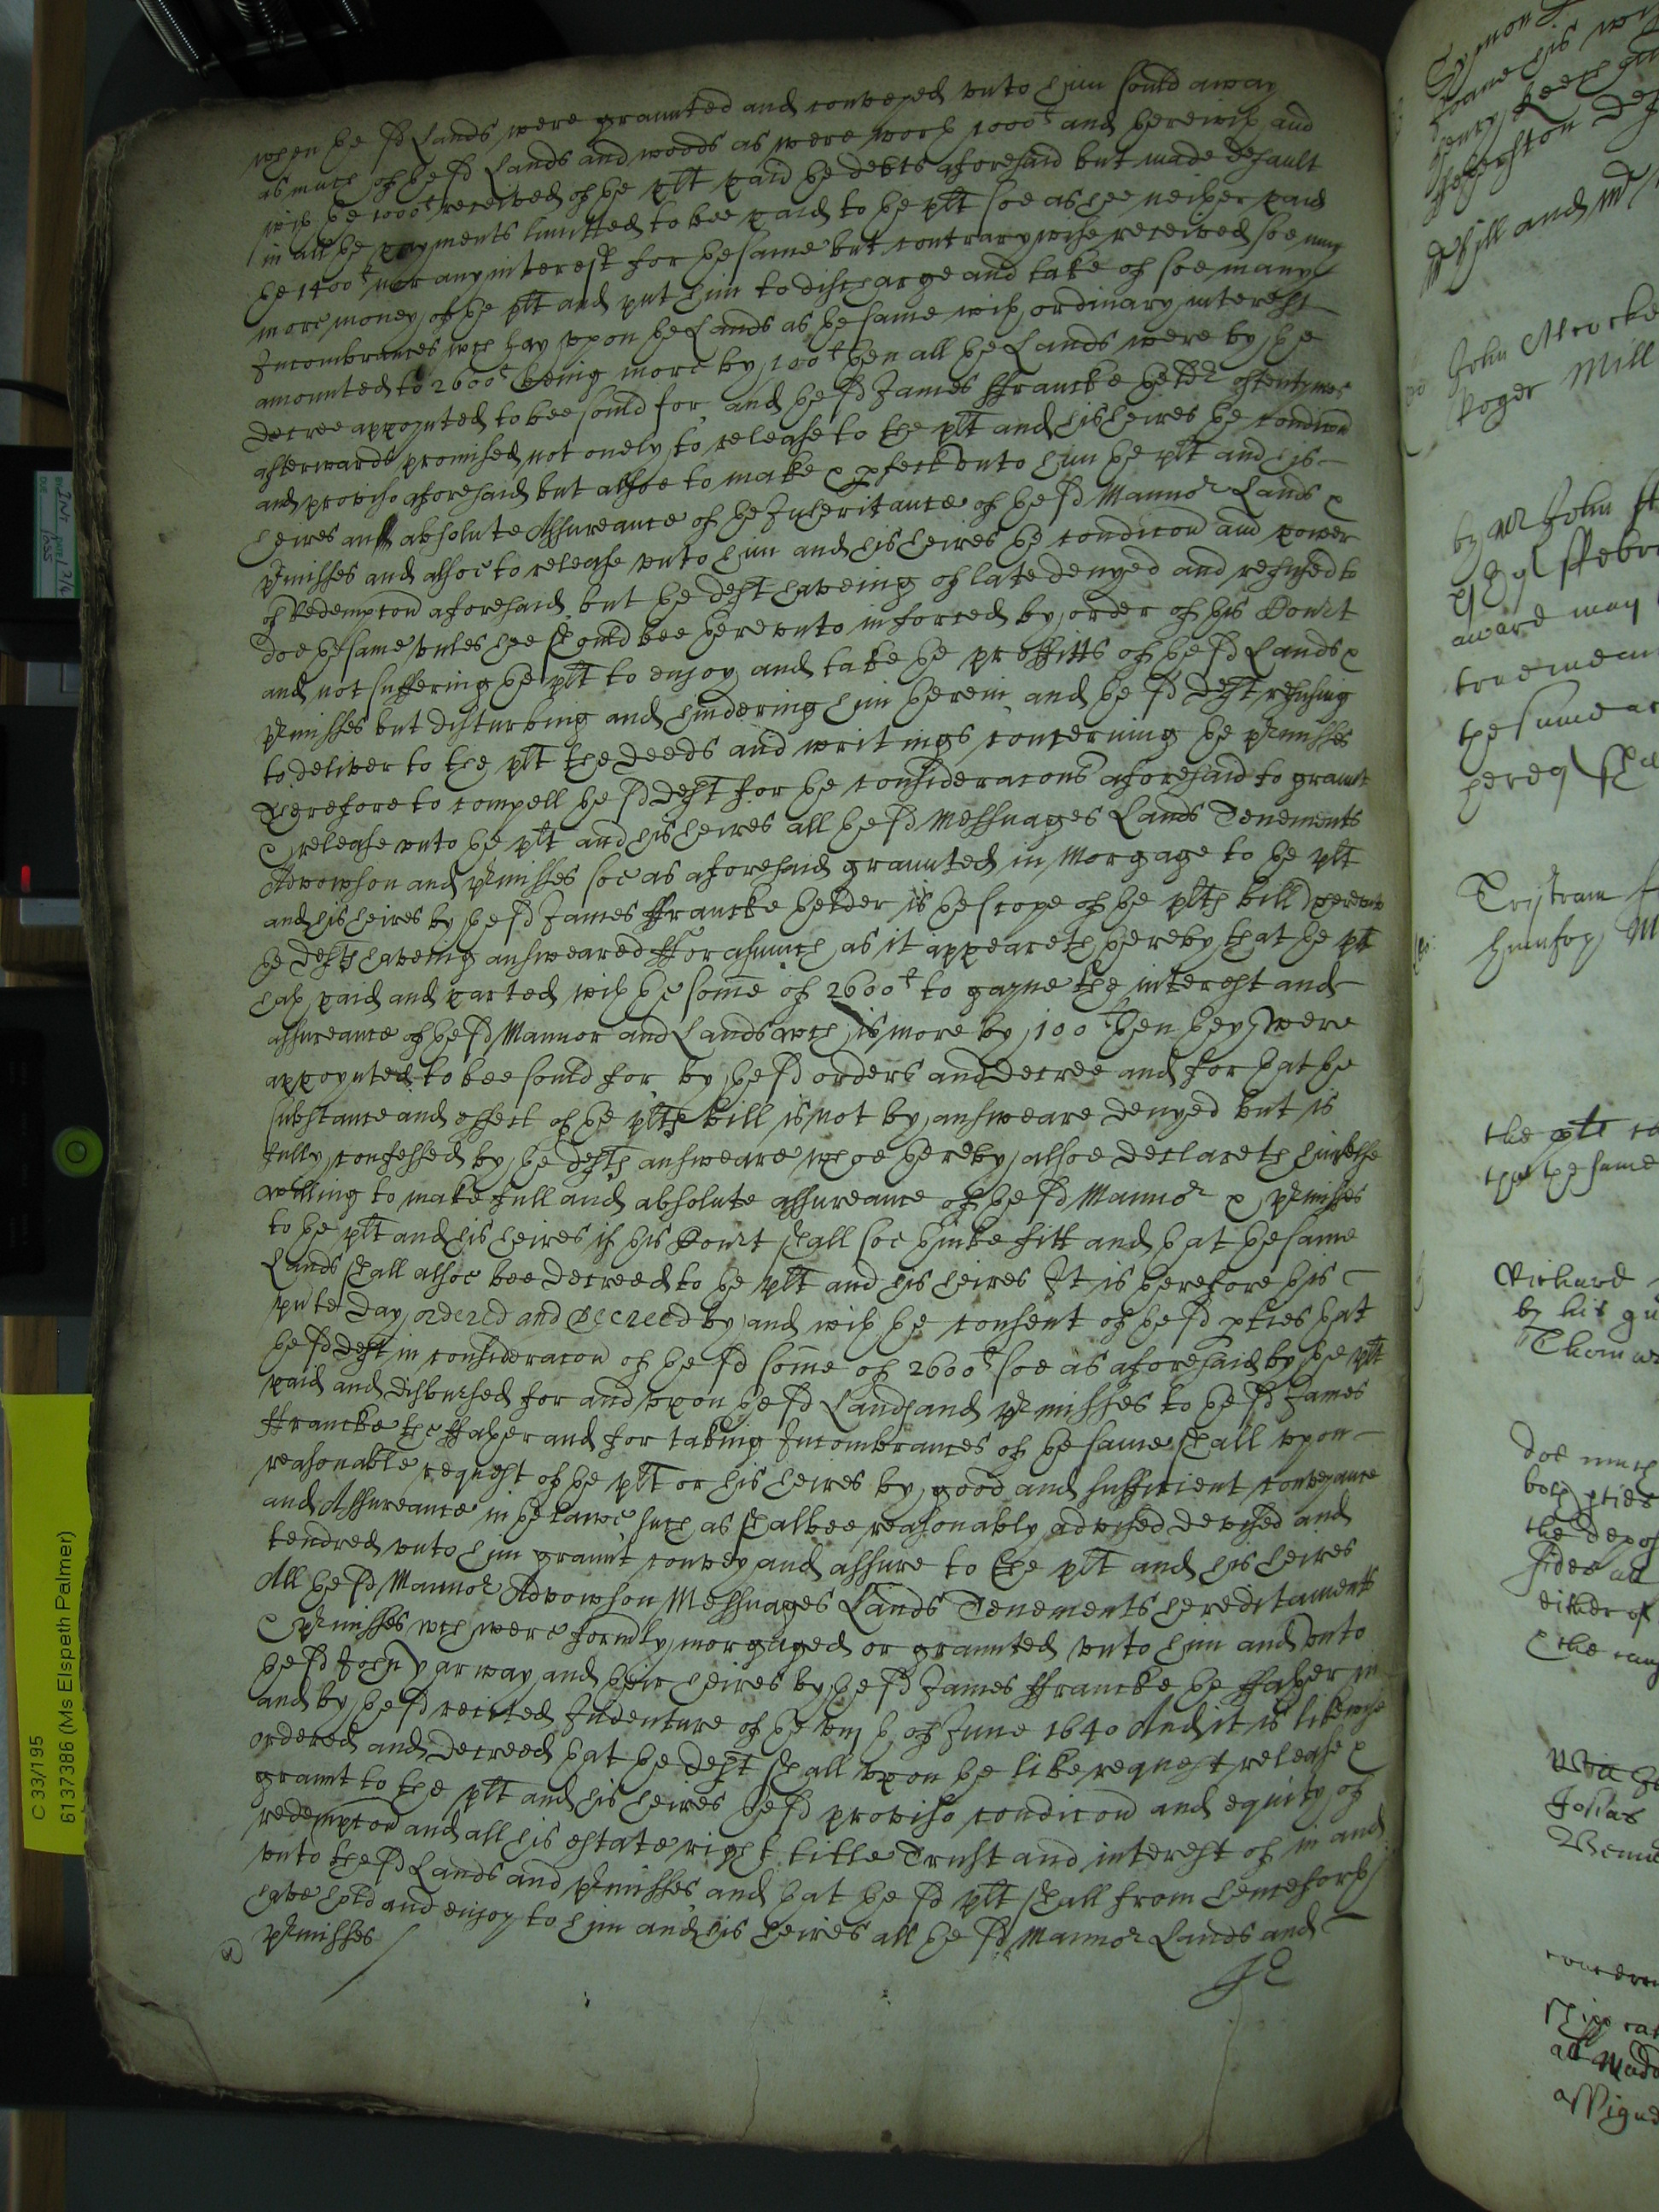 when the sd Lands were graunted and conveyed unto him sould away
as much of the sd Lands and woods as were worth 1000£ and therewith and
with the 1000£ received of the plt paid the debts aforesaid but made default
in all the payments limitted to bee paid to the plt soe as hee neither paid
the 1400£ nor any interest for the same but contrarywise received soe much
more money of the plt and put him to discharge and take of soe many
Incombrances wch lay upon the Lands as the same with ordinary interest
amounted to 2600£ being more by 100£ then all the Lands were by the
decree appoynted to bee sould for and the sd James ffrancke thelder oftentymes
afterwards promised not onely to release to the plt and his heires the condicon
and proviso aforesaid but alsoe to make & pfect unto him the plt and his
heires an absolute Assureance of the Inheritance of the sd Mannor Lands &
pmisses and alsoe to release unto him and his heires the condicon and power
of Redempcon aforesaid but the deft haveing of late denyed and refused to
doe the same unles hee should bee thereunto inforced by order of this Court
and not suffering the plt to enjoy and take the proffitts of the sd Lands &
pmisses but disturbing and hindering him therein and the sd deft refusing
to deliver to the plt the deeds and writings concerning the pmisses
Therefore to compell the sd deft for the consideracons aforesaid to graunt
& release unto the plt and his heires all the sd Messuages Lands Tenements
Advowson and pmisses soe as aforesaid graunted in Morgage to the plt
and his heires by the sd James ffrancke thelder is the scope of the plts bill Whereunto
the deft haveing answeared fforasmuch as it appeareth thereby that the plt
hath paid and parted with the some of 2600£ to gayne the interest and
assureance of the sd Mannor and Lands wch is more by 100£ then they were
appoynted to bee sould for by the sd orders and decree and for that the
substance and effect of the plts bill is not by answeare denyed but is
fully confessed by the defts answeare whoe thereby alsoe declareth himselfe
willing to make full and absolute assureance of the sd Mannor & pmisses
to the plt and his heires if this Court shall soe thinke fitt and that the same
Lands shall alsoe bee decreed to the plt and his heires It is therefore this
pnte day ordered and decreed by and with the consent of the sd pties that
the sd deft in consideracon of the sd some of 2600£ soe as aforesaid by the plt
paid and disbursed for and upon the sd Lands and pmisses to the sd James
ffrancke the ffather and for taking Incombrances of the same shall upon
reasonable request of the plt or his heires by good and sufficient conveyance
and Assureance in the Lawe such as shalbee reasonably advised devised and
tendred unto him graunt convey and assure to the plt and his heires
All the sd Mannor Advowson Messuages Lands Tenements hereditaments
& pmisses wch were formly morgaged or graunted unto him and unto
the sd John Yarway and their heires by the sd James ffrancke the ffather in
and by the sd recited Indenture of the of June 1640 And it is likewise
ordered and decreed that the deft shall upon the like request release &
graunt to the plt and his heires the sd proviso condicon and equity of
redempcon and all his estate right title Trust and interest of in and
unto the sd Lands and pmisses and that the sd plt shall from henceforth
have hold and enjoy to him and his heires all the sd Mannor Lands and
pmisses
C 33/195
6137386 (Ms Elspeth Palmer)
John
Roger Mill
Tristram
the plt
Richard
by his gu
Thomas